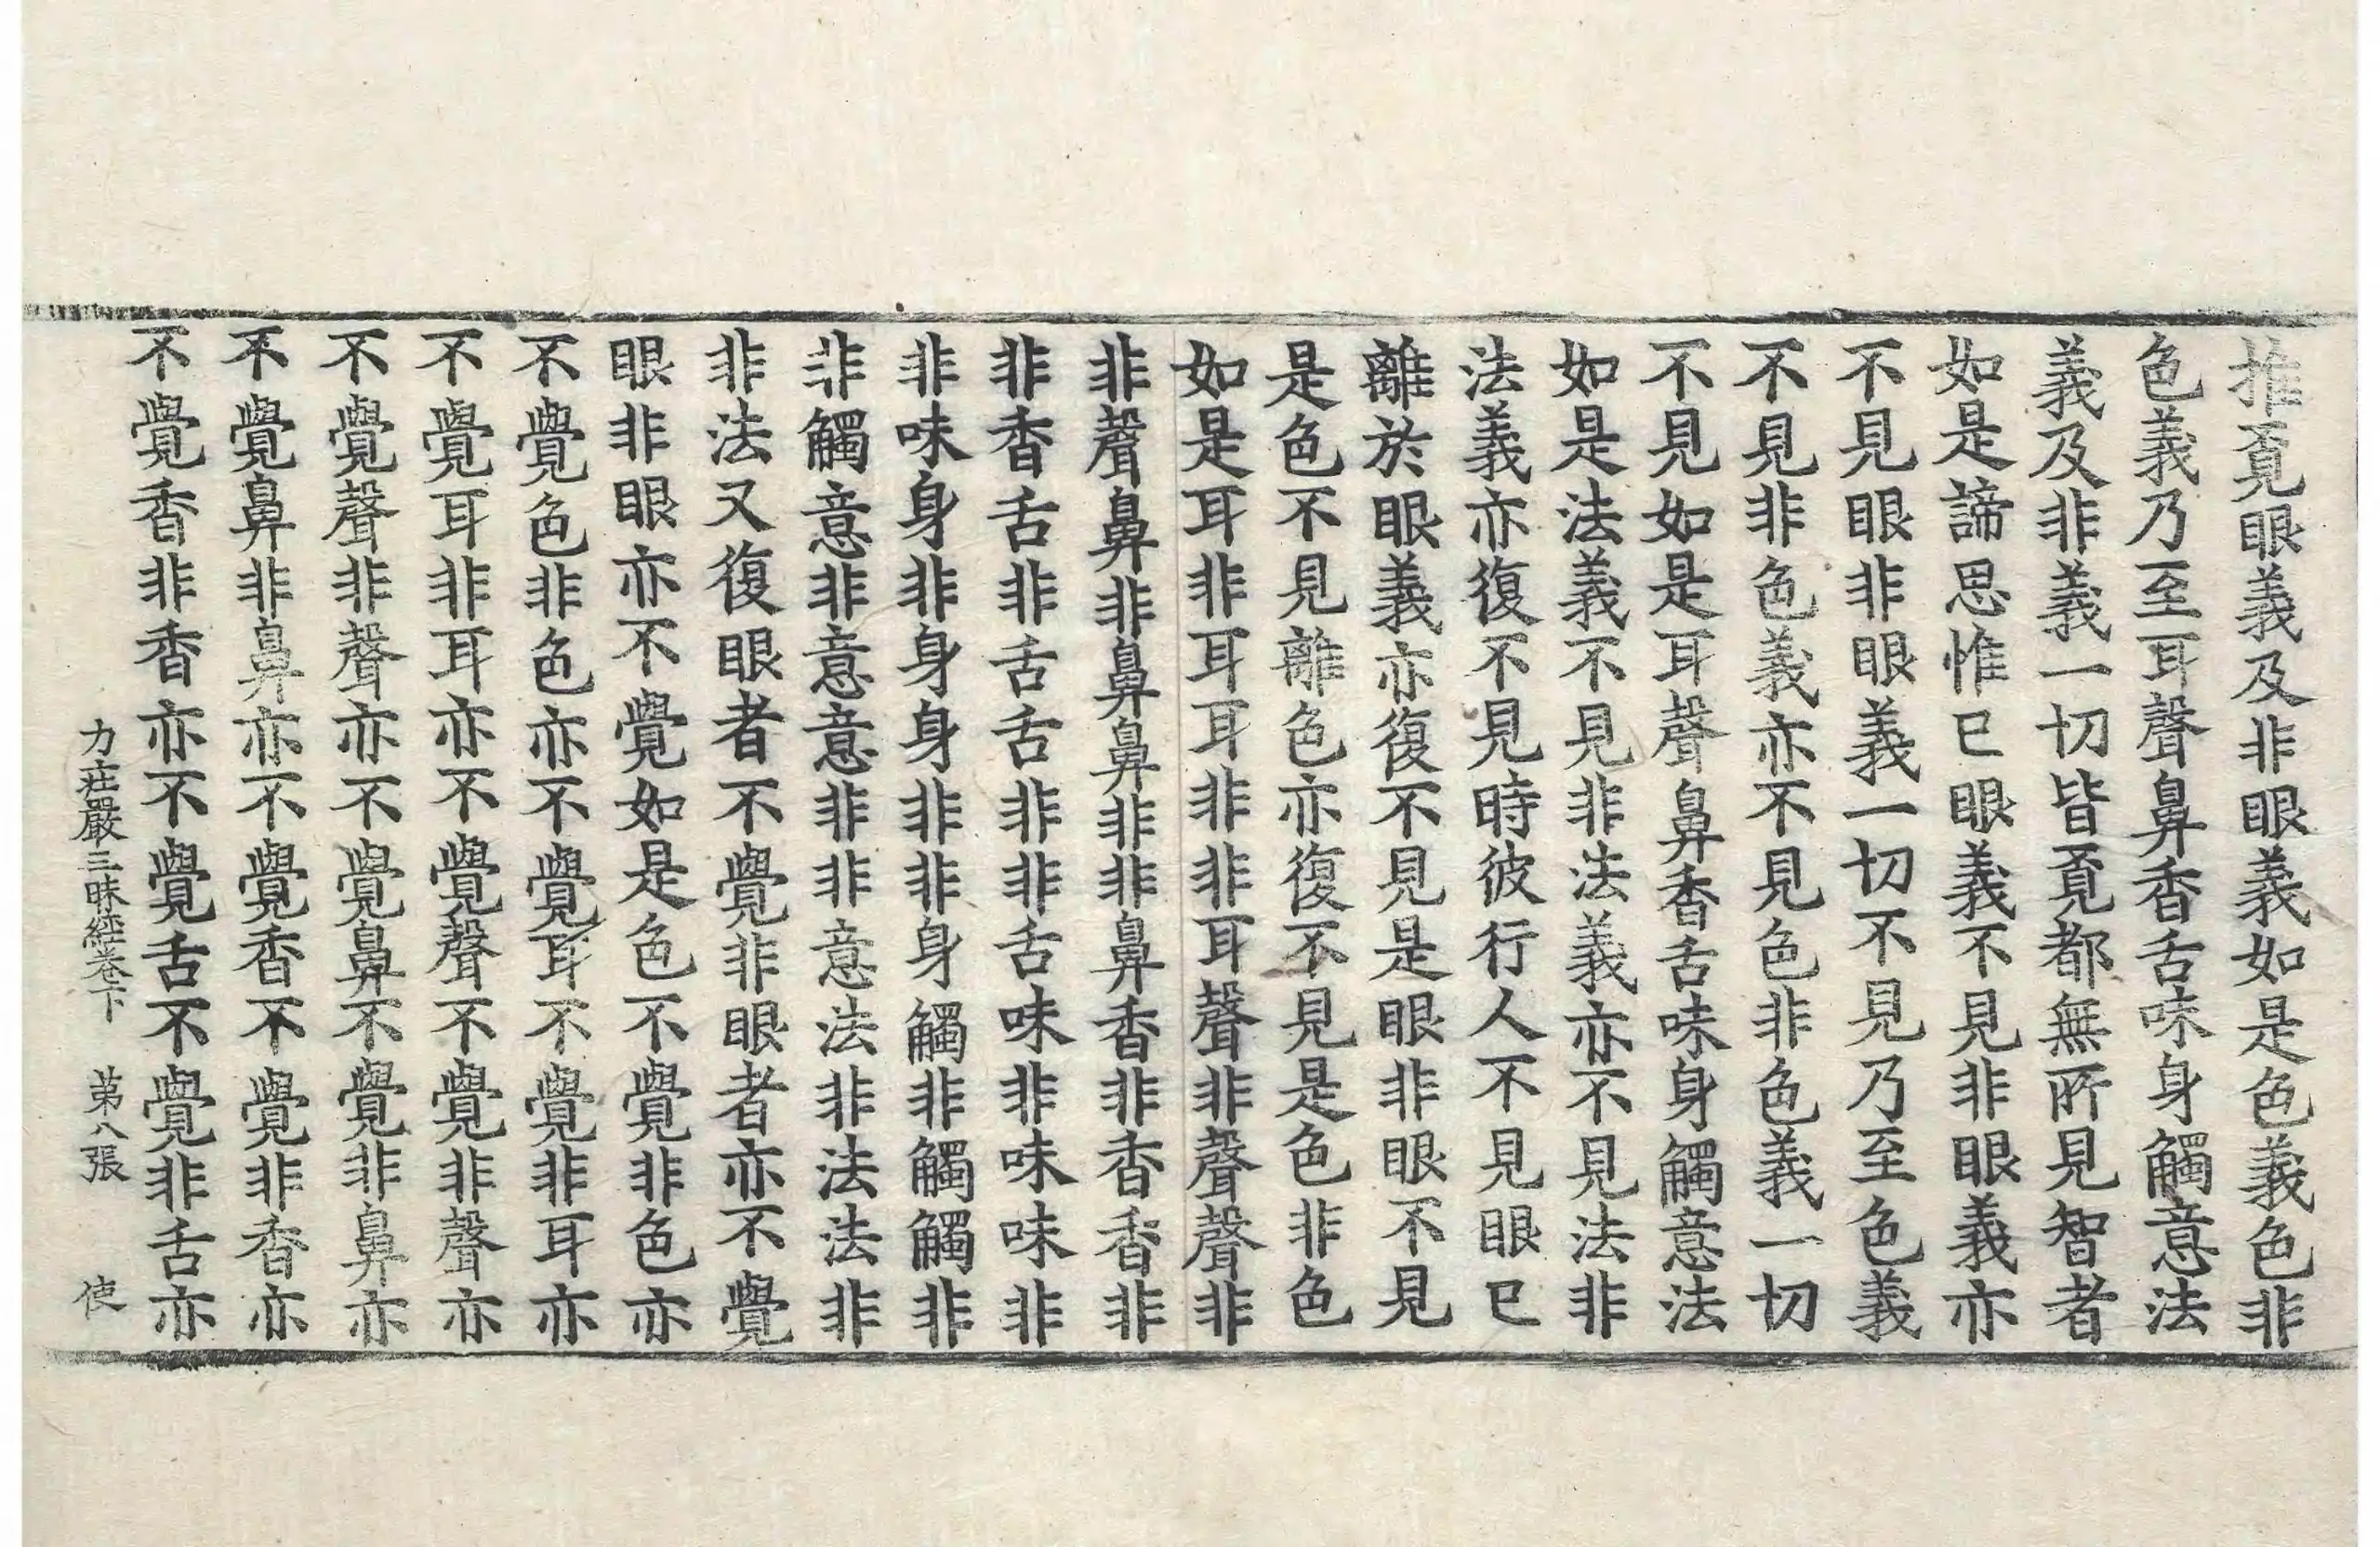 推覔眼義及非眼義如是色義色非
色義乃至耳聲鼻香舌味身觸意法
義及非義一切皆覔都無所見智者
如是諦思惟已眼義不見非眼義亦
不見眼非眼義一切不見乃至色義
不見非色義亦不見色非色義一切
不見如是耳聲鼻香舌味身觸意法
如是法義不見非法義亦不見法非
法義亦復不見時彼行人不見眼已
離於眼義亦復不見是眼非眼不見
是色不見離色亦復不見是色非色
如是耳非耳耳非非耳聲非聲聲非
非聲鼻非鼻鼻非非鼻香非香香非
非香舌非舌舌非非舌味非味味非
非味身非身身非非身觸非觸觸非
非觸意非意意非非意法非法法非
非法又復眼者不覺非眼者亦不覺
眼非眼亦不覺如是色不覺非色亦
不覺色非色亦不覺耳不覺非耳亦
不覺耳非耳亦不覺聲不覺非聲亦
不覺聲非聲亦不覺鼻不覺非鼻亦
不覺鼻非鼻亦不覺香不覺非香亦
不覺香非香亦不覺舌不覺非舌亦
力莊嚴三昧經卷下 第八張 使